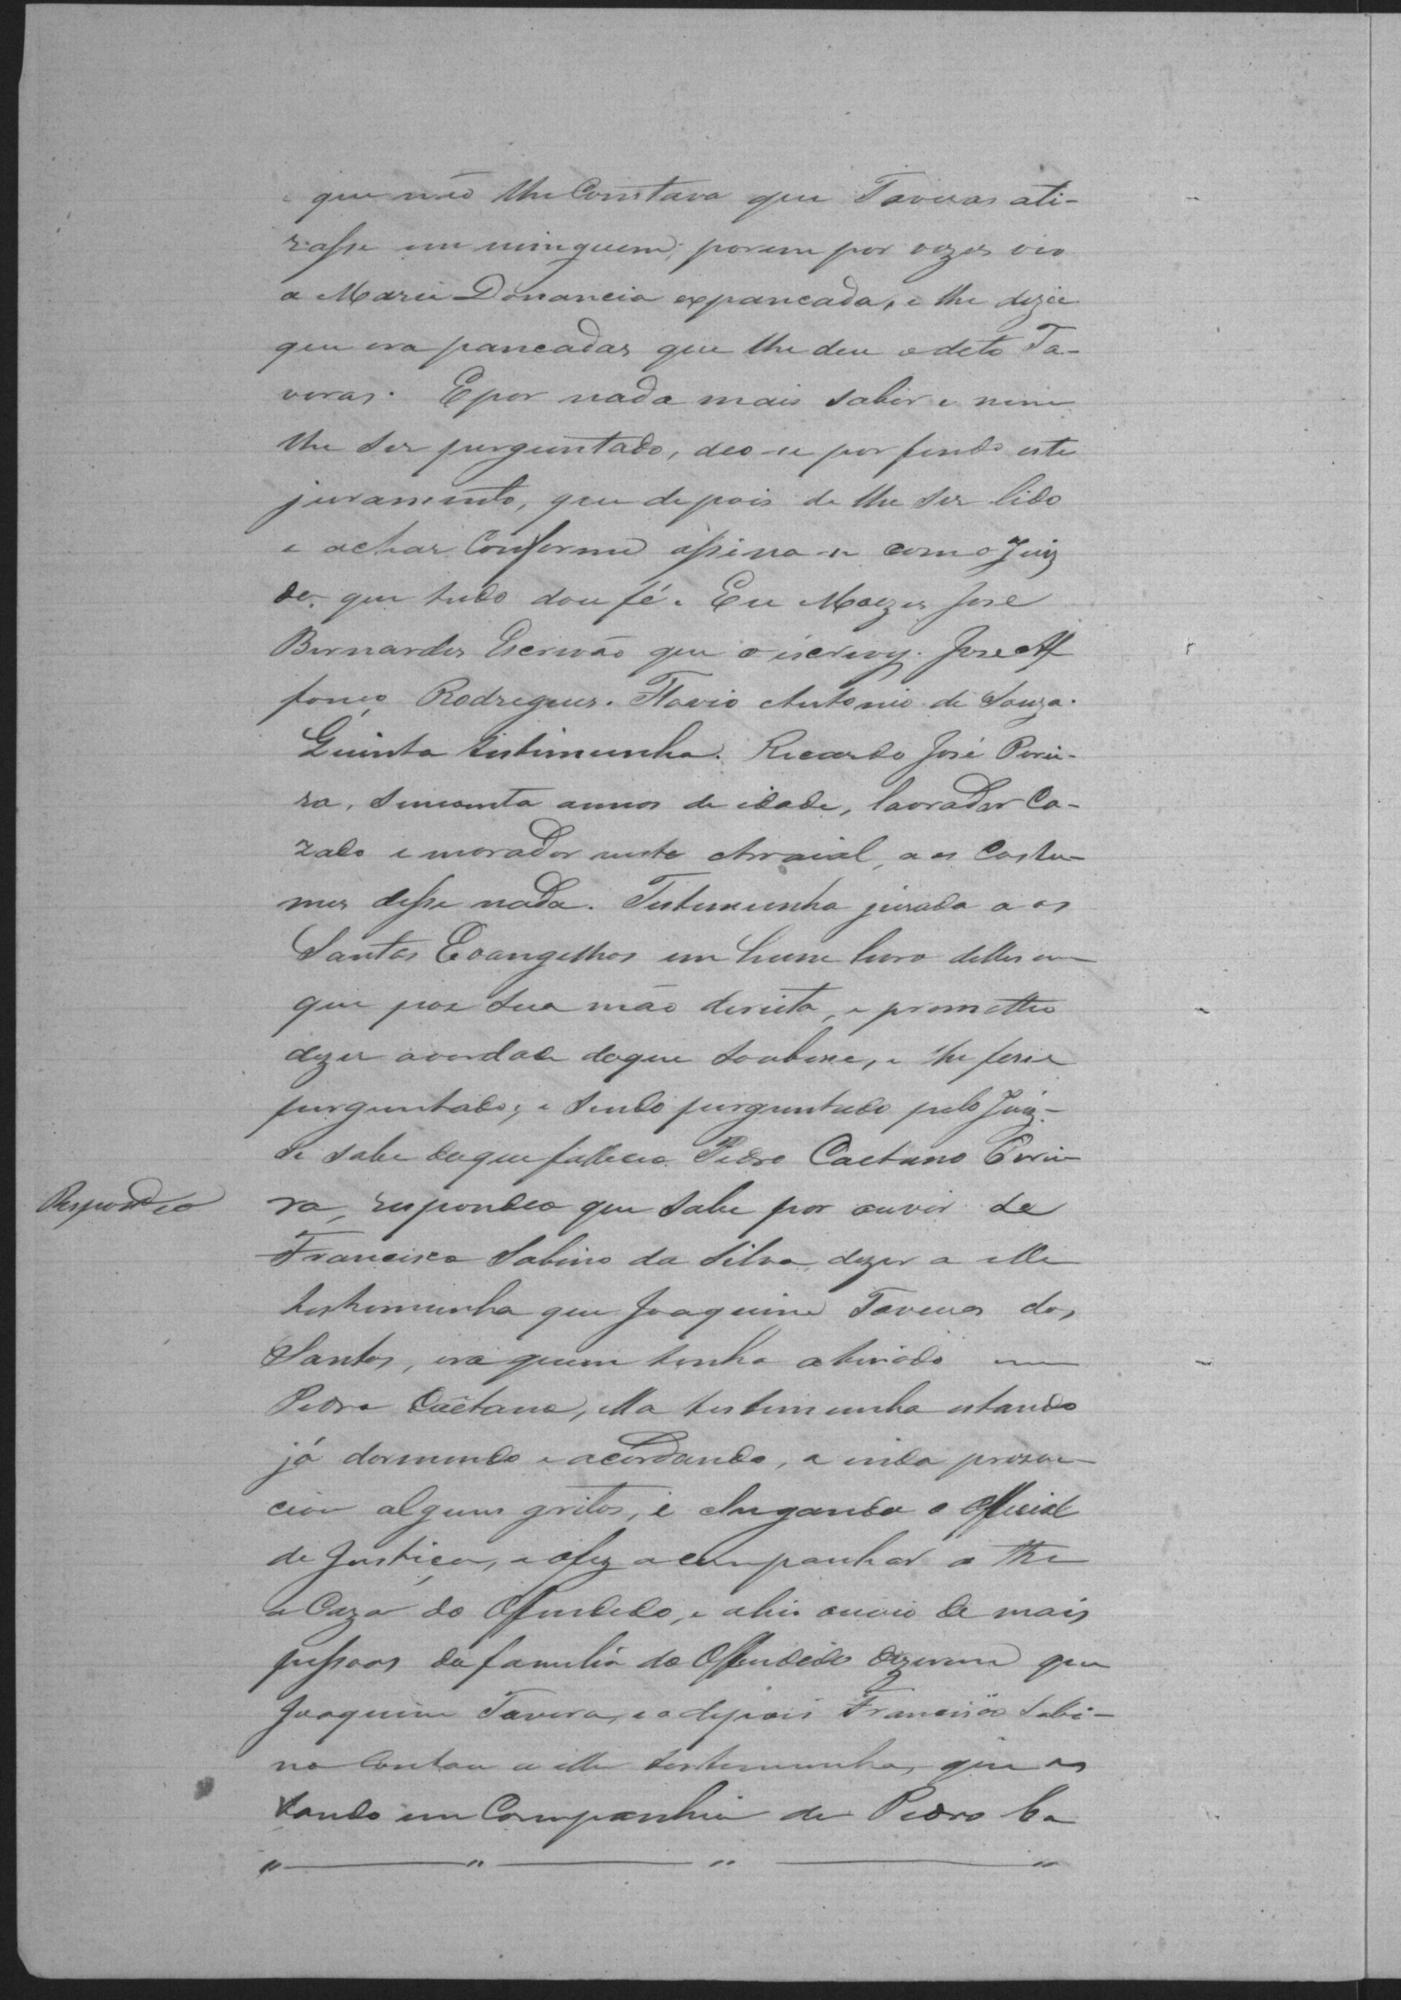 que não lhe Constava que Taveras ati-
rasse em ninguem; porem por vezes vio
a Maria Donancia expancada, e lhe dizia
que era pancadas que lhe deu o dito Ta-
veras. E por nada mais saber e nem
lhe ser perguntado, deo-se por findo este
juramento, que depois de lhe ser lido
e achar Conforme assina-se com o Juiz
do que tudo dou fé. Eu Moyzes José
Bernardes Escrivão que o escrevy. José Af
fonço Rodrigues. Flavio Antonio de Souza.
Quinta testimunha. Ricardo José Perei-
ra, secenta annos de idade, lavrador Ca-
zado e morador neste Arraial, aos Costu-
mes disse nada. Testemunha jurada aos
Santos Evangelhos em hum livro delles em
que poz sua mão direita, e prometteo
dizer averdade doque soubesse, e lhe fosse
perguntado; e sendo perguntado pelo Juiz
se sabe doque falleceo Pedro Caetano Perei-
Respondeo
ra, respondeo que sabe por ouvir de
Francisco Sabino da Silva, dizer a elle
testemunha que Joaquim Taveras dos
Santos, era quem tinha atirado em
Pedro Caetano, ella testimunha estando
já dormindo e acordando, a inda prezen-
ciou alguns gritos, e chegando o Official
de Justiça, e ofez acompanhar a the
a Caza do Offendido, e ahi ouvio de mais
pessoas da familia do Offendido dizerem que
Joaquim Tavera, e o depois Francisco Sabi-
no Contou a elle testemunha, que es
tando em Companhia de Pedro Ca
" — " — " — "